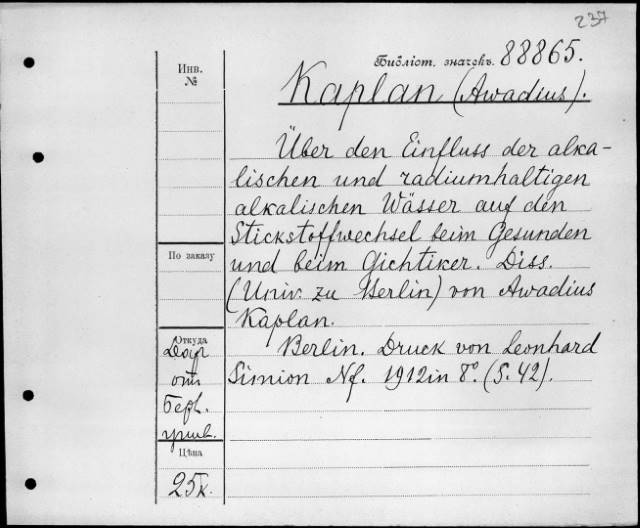 237
Инв.
№
Библіот. значекъ. 88865.
Kaplan (Awadius).
Über den Einfluss der alka-
lischen und radiumhaltigen
alkalischen Wässer auf den
Stickstoffwechsel beim Gesunden
По заказу
und beim Gichtiker. Diss.
(Univ. zu Berlin) von Awadius
Kaplan.
Откуда
Berlin. Druck von Leonhard
Дар
Simion Nf. 1912 in 8º. (S. 42).
от
Берл.
унив.
Цѣна
25к.